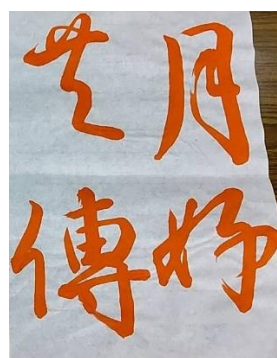 月好
共傳